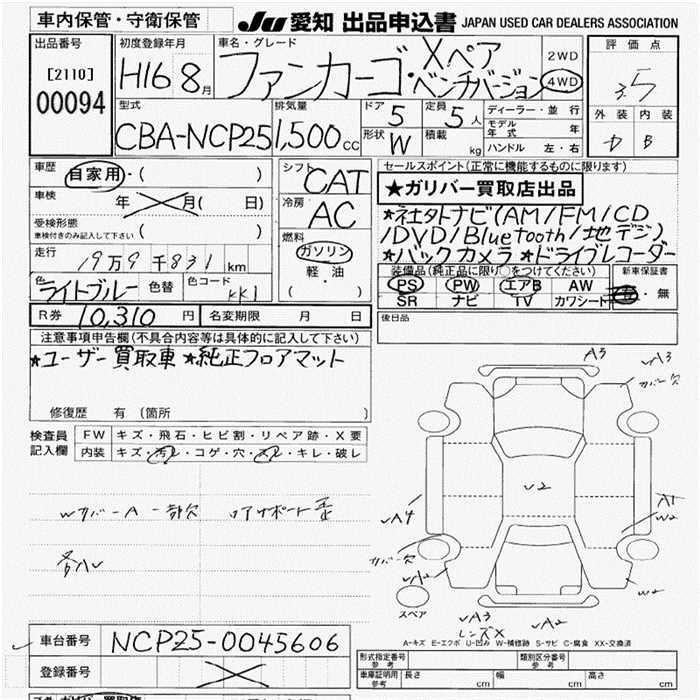 車内保管・守衛保管
JU 愛知 出品申込書 JAPAN USED CAR DEALERS ASSOCIATION
出品番号
[2110]
00094
初度登録年月
H16 8月
車名・グレード
Xペア
ファンカーゴ・ベンチバージョン
2WD
4WD
評価点
3.5
外装 内装
D B
型式
CBA-NCP25
排気量
1,500cc
ドア 5
定員 5人
形状 W
積載 kg
ディーラー・並行
モデル年式 年
ハンドル 左・右
車歴 自家用・( )
車検 年 月( 日)
受検形態
車検付きのみ記入して下さい ( )
走行 19万9千831km
色 ライトブルー 色替 色コード KK1
R券 10,310円 名変期限 月 日
シフト CAT
冷房 AC
燃料
ガソリン
軽・油
( )
セールスポイント(正常に機能するものに限ります)
★ガリバー買取店出品
★社外ナビ(AM/FM/CD
/DVD/Bluetooth/地デジ)
★バックカメラ★ドライブレコーダー
装備品(純正品に限り○をつけてください)
PS PW エアB AW
SR ナビ TV カワシート
新車保証書
有・無
後日品
注意事項申告欄(不具合内容等は具体的に記入して下さい)
★ユーザー買取車★純正フロアマット
修復歴 有 (箇所 )
検査員記入欄
FW キズ・飛石・ヒビ割・リペア跡・X要
内装 キズ・汚レ・コゲ・穴・スレ・キレ・破レ
WカバーA一部欠 リアサポート歪
A3
A3
カバー欠
U2
A4
A1
W2
カバー欠
A2
W2
スペア
A3
レンズX
A2
A-キズ E-エクボ U-凹み W-補修跡 S-サビ C-腐食 XX-交換済
車台番号 NCP25-0045606
登録番号
形式指定番号 参考
類別区分番号 参考
車庫証明用 参考 長さ cm 幅 cm 高さ cm